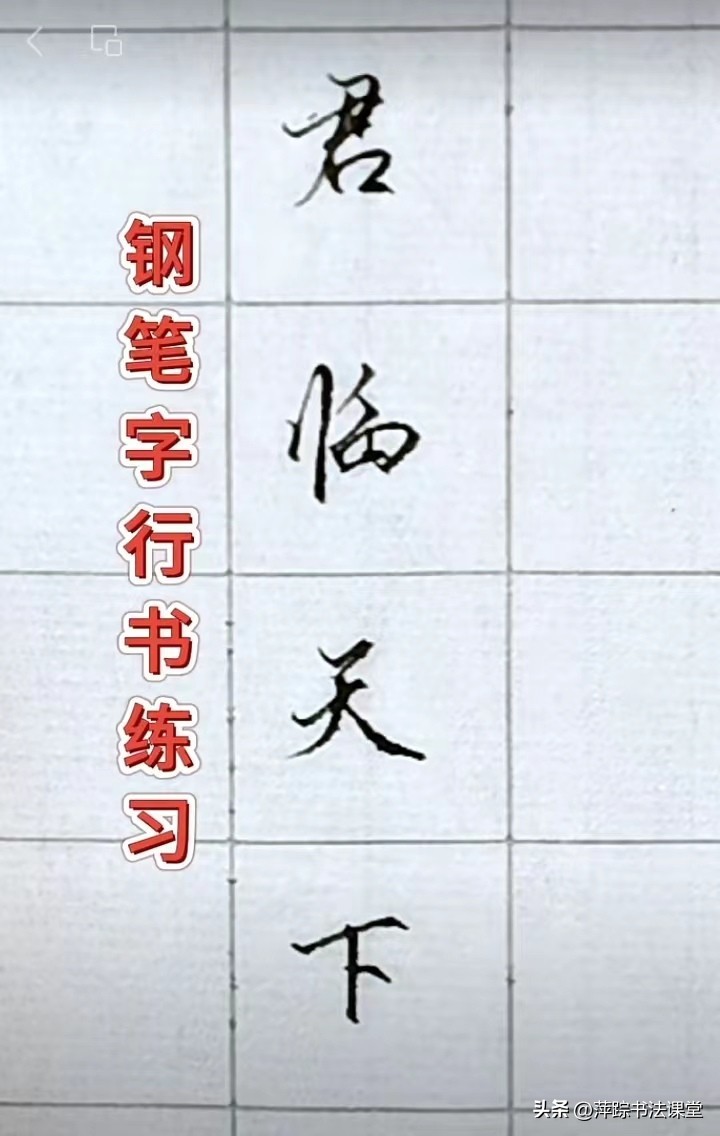 君临天下
钢笔字行书练习
头条 @萍踪书法课堂